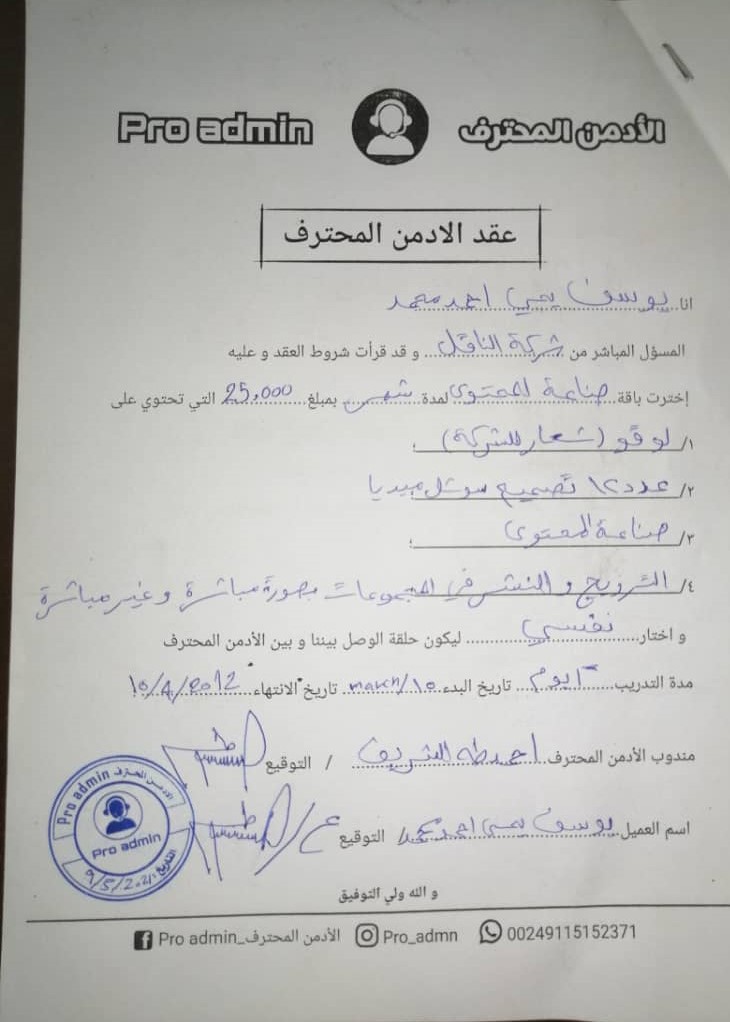 الأدمن المحترف Pro admin
عقد الادمن المحترف
انا يوسف يحيى احمد محمد
المسؤل المباشر من شركة الناقل و قد قرأت شروط العقد و عليه
إخترت باقة صناعة المحتوى لمدة شهر بمبلغ 25,000 التي تحتوي على
١/ لوقو (شعار للشركة)
٢/ عدد ١٢ تصميم سوشل ميديا
٣/ صناعة المحتوى
٤/ الترويج و النشر في المجموعات بصورة مباشرة و غير مباشرة
و اختار نفسي ليكون حلقة الوصل بيننا و بين الأدمن المحترف
مدة التدريب يوم تاريخ البدء march/10 تاريخ الانتهاء
مندوب الأدمن المحترف احمد طه الشريف / التوقيع
اسم العميل يوسف يحيى احمد محمد / التوقيع ع/
الأدمن المحترف Pro admin
Pro admin
التاريخ: 9/5/2021
و الله ولي التوفيق
Pro admin_الأدمن المحترف Pro_admn 00249115152371